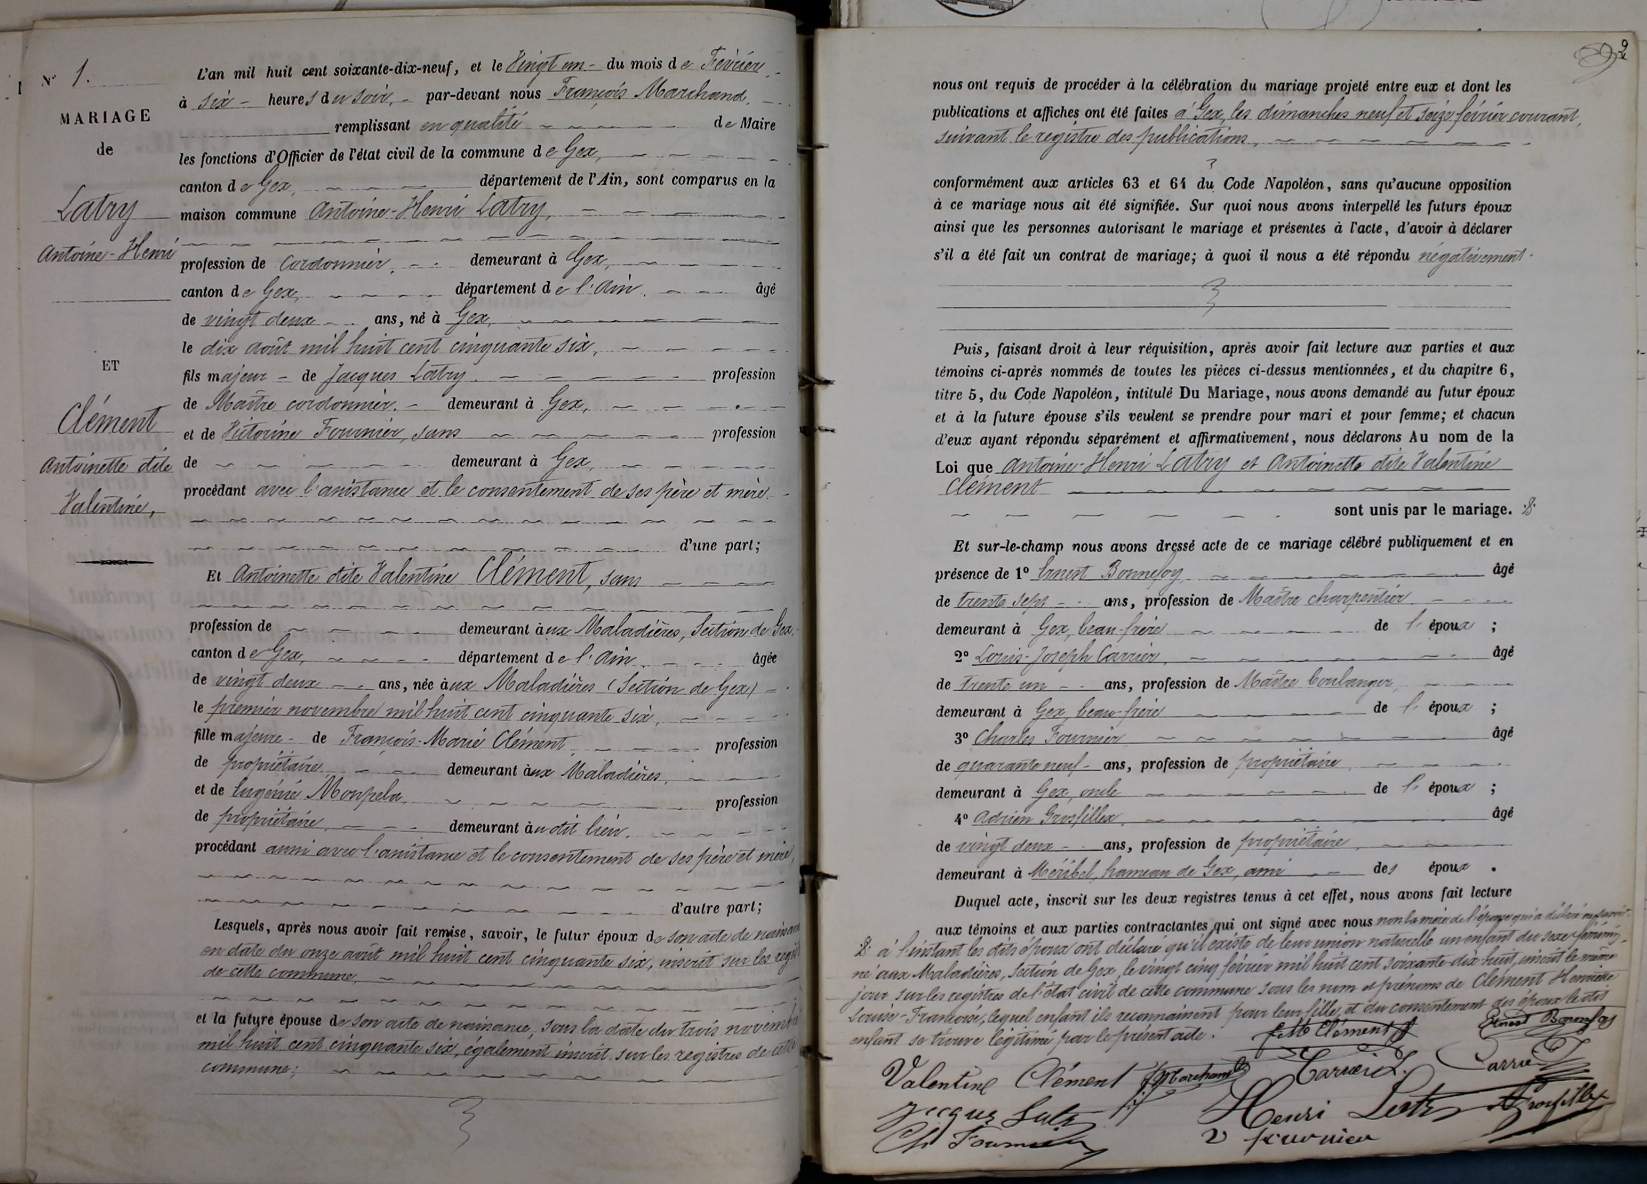 N° 1.
MARIAGE
de
Latry
Antoine-Henri
ET
Clément
Antoinette dite
Valentine,
L'an mil huit cent soixante-dix-neuf, et le Vingt un - du mois de Février
à six - heures du soir, - par-devant nous François Marchand,
remplissant en qualité de Maire
les fonctions d'Officier de l'état civil de la commune de Gex,
canton de Gex, département de l'Ain, sont comparus en la
maison commune Antoine-Henri Latry,
profession de Cordonnier, demeurant à Gex,
canton de Gex, département de l'Ain. âgé
de vingt deux ans, né à Gex,
le dix août mil huit cent cinquante six,
fils majeur - de Jacques Latry profession
de Maître cordonnier. - demeurant à Gex,
et de Victorine Fournier, sans profession
de demeurant à Gex,
procédant avec l'assistance et le consentement de ses père et mère
d'une part;
Et Antoinette dite Valentine Clément, sans
profession de demeurant aux Maladières, Section de Gex,
canton de Gex, département de l'Ain âgée
de vingt deux ans, née aux Maladières (Section de Gex)
le premier novembre mil huit cent cinquante six,
fille majeure - de François-Marie Clément profession
de propriétaire demeurant aux Maladières,
et de Eugénie Monpela profession
de propriétaire demeurant au dit lieu.
procédant aussi avec l'assistance et le consentement de ses père et mère,
d'autre part;
Lesquels, après nous avoir fait remise, savoir, le futur époux de son acte de naissance
en date du onze août mil huit cent cinquante six, inscrit sur les registres
de cette commune,
et la future épouse de son acte de naissance, sous la date du trois novembre
mil huit cent cinquante six, également inscrit sur les registres de cette
commune;
2
nous ont requis de procéder à la célébration du mariage projeté entre eux et dont les
publications et affiches ont été faites à Gex, les dimanches neuf et seize février courant,
suivant le registre des publications,
conformément aux articles 63 et 64 du Code Napoléon, sans qu'aucune opposition
à ce mariage nous ait été signifiée. Sur quoi nous avons interpellé les futurs époux
ainsi que les personnes autorisant le mariage et présentes à l'acte, d'avoir à déclarer
s'il a été fait un contrat de mariage; à quoi il nous a été répondu négativement.
Puis, faisant droit à leur réquisition, après avoir fait lecture aux parties et aux
témoins ci-après nommés de toutes les pièces ci-dessus mentionnées, et du chapitre 6,
titre 5, du Code Napoléon, intitulé Du Mariage, nous avons demandé au futur époux
et à la future épouse s'ils veulent se prendre pour mari et pour femme; et chacun
d'eux ayant répondu séparément et affirmativement, nous déclarons Au nom de la
Loi que Antoine-Henri Latry et Antoinette dite Valentine
Clément
sont unis par le mariage.
Et sur-le-champ nous avons dressé acte de ce mariage célébré publiquement et en
présence de 1° Ernest Bonnefoy âgé
de trente sept ans, profession de Maître charpentier
demeurant à Gex, beau-frère de l'époux ;
2° Louis-Joseph Carrier, âgé
de trente un ans, profession de Maître boulanger,
demeurant à Gex, beau-frère de l'époux ;
3° Charles Fournier âgé
de quarante neuf ans, profession de propriétaire
demeurant à Gex, oncle de l'époux ;
4° Adrien Grosfillex, âgé
de vingt deux ans, profession de propriétaire,
demeurant à Méribel, hameau de Gex, ami des époux .
Duquel acte, inscrit sur les deux registres tenus à cet effet, nous avons fait lecture
aux témoins et aux parties contractantes qui ont signé avec nous non la mère de l'épouse qui a déclaré ne savoir.
à l'instant les dits époux ont déclaré qu'il existe de leur union naturelle un enfant du sexe féminin,
né aux Maladières, Section de Gex, le vingt cinq février mil huit cent soixante dix huit, inscrit le même
jour sur les registres de l'état civil de cette commune sous les nom et prénoms de Clément Henriette
Louise-Françoise, lequel enfant ils reconnaissent pour leur fille, et du consentement des époux le dit
enfant se trouve légitimé par le présent acte.
Clément
Ernest Bonnefoy
Valentine Clément
F. Marchand
Carrier L.
Carrier
Henri Latry
A Grosfillex
Ch Fournier
V fournier